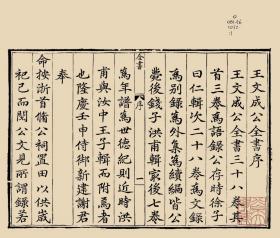 王文成公全書序
王文成公全書三十八卷其
首三卷爲語錄公存時徐子
曰仁輯次二十八卷爲文錄
爲別錄爲外集爲續編皆公
薨後錢子洪甫輯最後七卷
爲年譜爲世德紀則近時洪
甫與汝中王子輯而附焉者
也隆慶壬申侍御新建謝君
奉
命按浙首脩公祠置田以供歲
祀已而閱公文見所謂錄若
全書
序
一